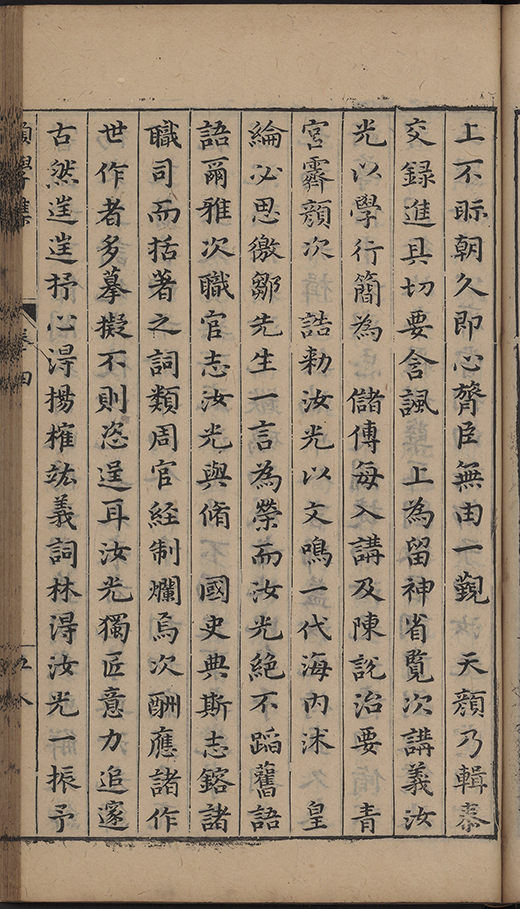 上不眎朝久即心膂臣無由一覲　天顔乃輯奏
交録進具切要含諷　上為留神省覧次講義汝
光以學行簡為　儲傅每入講及陳説治要　青
宮霽顔次　誥勅汝光以文鳴一代海内沭　皇
綸必思徼鄒先生一言為榮而汝光絶不蹈舊語
語爾雅次職官志汝光與脩　國史典斯志鎔諸
職司而括著之詞類周官經制爛焉次酬應諸作
世作者多摹擬不則恣逞耳汝光獨匠意力追邃
古然逞逞抒心淂揚搉竑義詞林淂汝光一振予
卷四